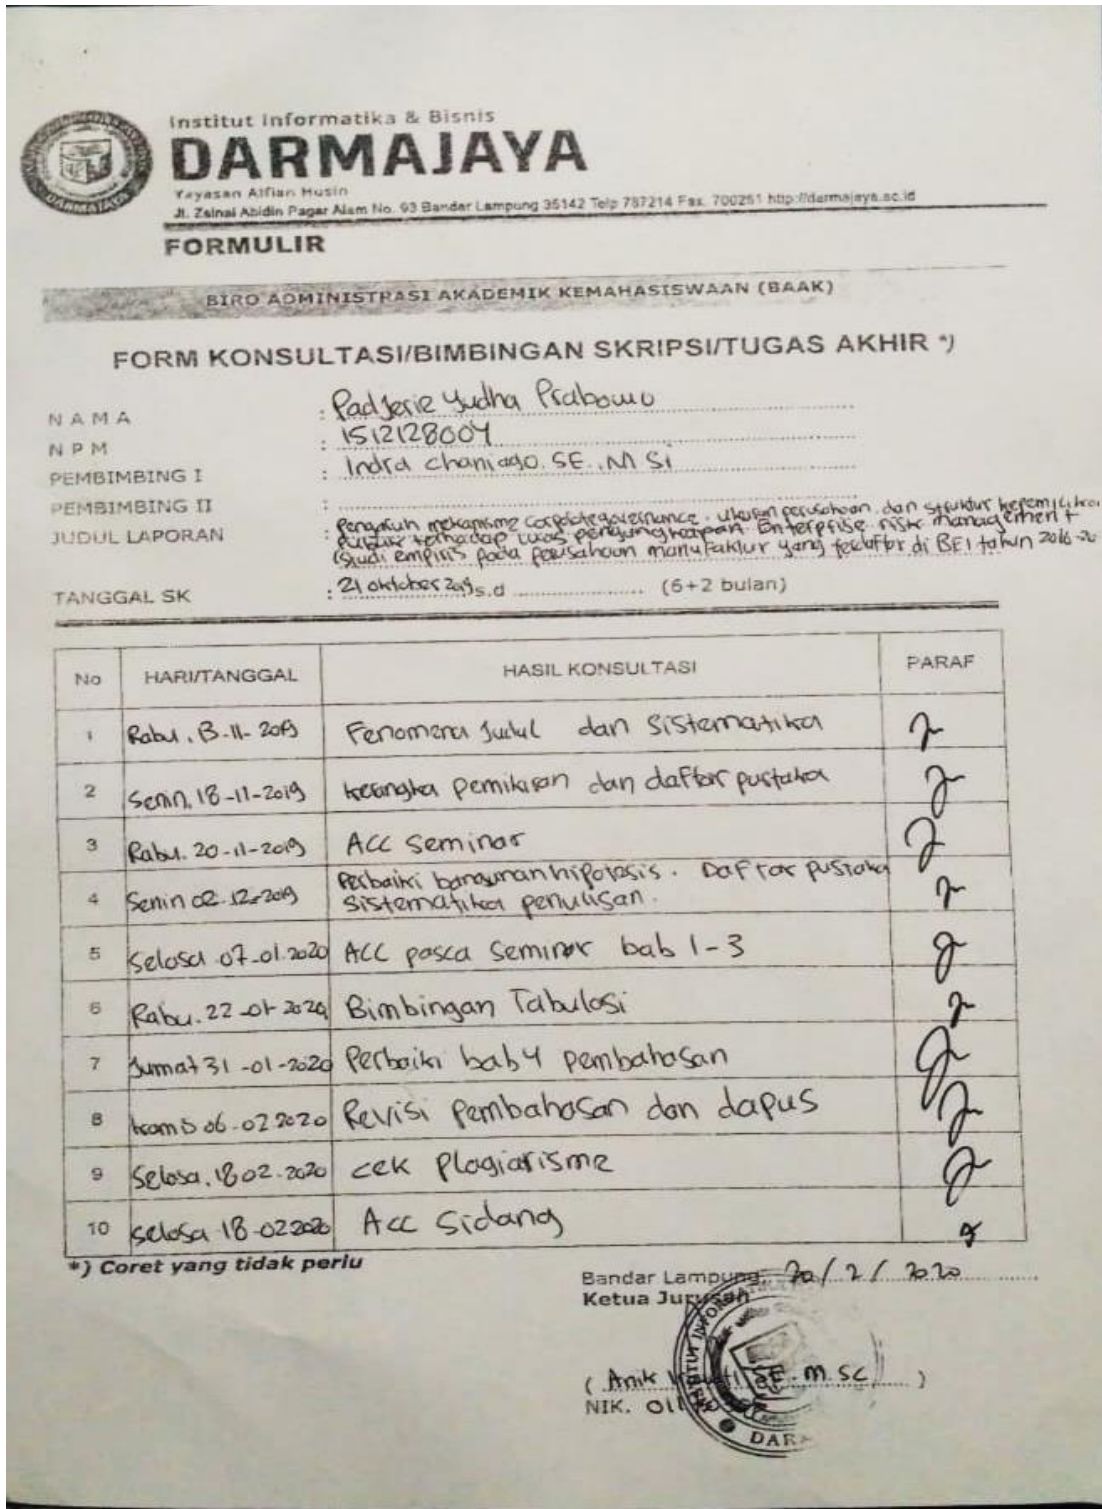 Institut Informatika & Bisnis
DARMAJAYA
Yayasan Alfian Husin
Jl. Zainal Abidin Pagar Alam No. 93 Bandar Lampung 35142 Telp 787214 Fax. 700261 http://darmajaya.ac.id
FORMULIR
BIRO ADMINISTRASI AKADEMIK KEMAHASISWAAN (BAAK)
FORM KONSULTASI/BIMBINGAN SKRIPSI/TUGAS AKHIR *)
NAMA : Padjerie Yudha Prabowo
NPM : 1512128004
PEMBIMBING I : Indra Chaniago. SE., M Si
PEMBIMBING II :
JUDUL LAPORAN : Pengaruh mekanisme corporate governance, ukuran perusahaan, dan struktur kepemilikan
publik terhadap luas pengungkapan Enterprise risk management
(studi empiris pada perusahaan manufaktur yang terdaftar di BEI tahun 2016-20
TANGGAL SK : 21 oktober 2019 s.d (6+2 bulan)
No HARI/TANGGAL HASIL KONSULTASI PARAF
1 Rabu, 13-11-2019 Fenomena Judul dan Sistematika
2 Senin, 18-11-2019 kerangka pemikiran dan daftar pustaka
3 Rabu. 20-11-2019 ACC Seminar
4 Senin 02-12-2019 Perbaiki bangunan hipotesis. Daftar pustaka
sistematika penulisan.
5 Selasa 07-01.2020 ACC pasca seminar bab 1-3
6 Rabu. 22-01-2020 Bimbingan Tabulasi
7 Jumat 31-01-2020 Perbaiki bab 4 pembahasan
8 kamis 06-02 2020 Revisi Pembahasan dan dapus
9 Selasa, 18 02-2020 cek Plagiarisme
10 Selasa 18-02 2020 Acc Sidang
*) Coret yang tidak perlu
Bandar Lampung, 20/2/2020
Ketua Jurusan
( Anik SE. M.Sc )
NIK. 011
DARMAJAYA